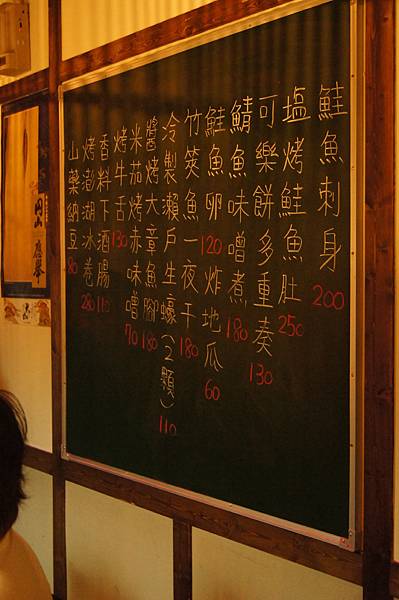 鮭魚刺身 200
塩烤鮭魚肚 250
可樂餅多重奏 130
鯖魚味噌煮 180
鮭魚卵 120 炸地瓜 60
竹筴魚一夜干 180
冷製瀨戶生蠔(2顆) 110
醬烤大章魚腳 180
米茄烤赤味噌 70
烤牛舌 130
香料下酒腸 110
烤澎湖冰卷 280
山藥納豆 80